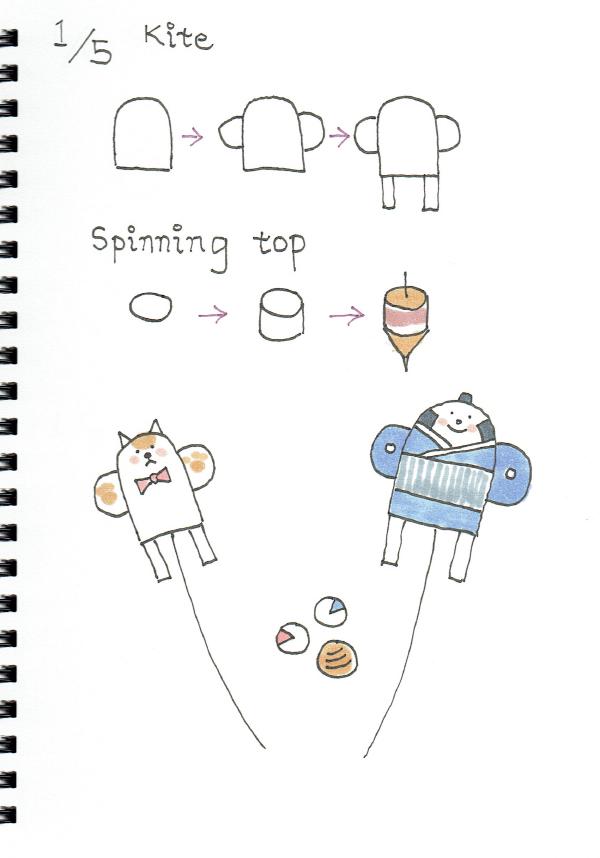 1/5 Kite
Spinning top